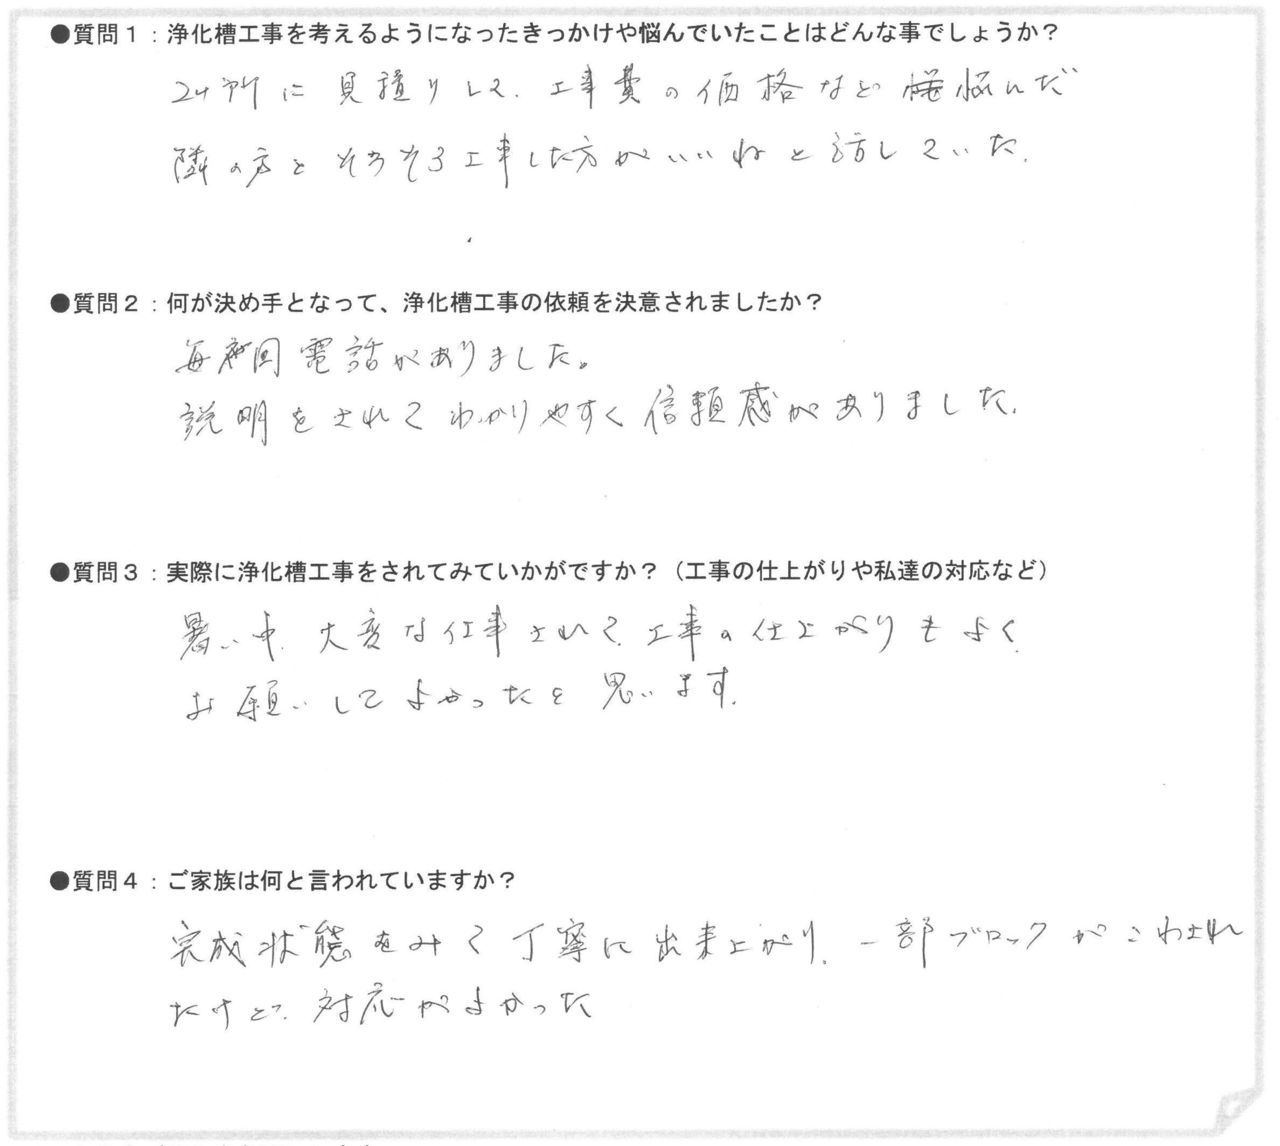 ●質問１：浄化槽工事を考えるようになったきっかけや悩んでいたことはどんな事でしょうか？
2ヶ所に見積りして、工事費の価格など悩んだ
隣の方とそろそろ工事した方がいいねと話していた。
●質問２：何が決め手となって、浄化槽工事の依頼を決意されましたか？
毎回電話がありました。
説明をされてわかりやすく信頼感がありました。
●質問３：実際に浄化槽工事をされてみていかがですか？（工事の仕上がりや私達の対応など）
暑い中、大変な仕事されて、工事の仕上がりもよく、
お願いしてよかったと思います。
●質問４：ご家族は何と言われていますか？
完成状態をみて丁寧に出来上がり、一部ブロックがこわされ
たけど、対応がよかった